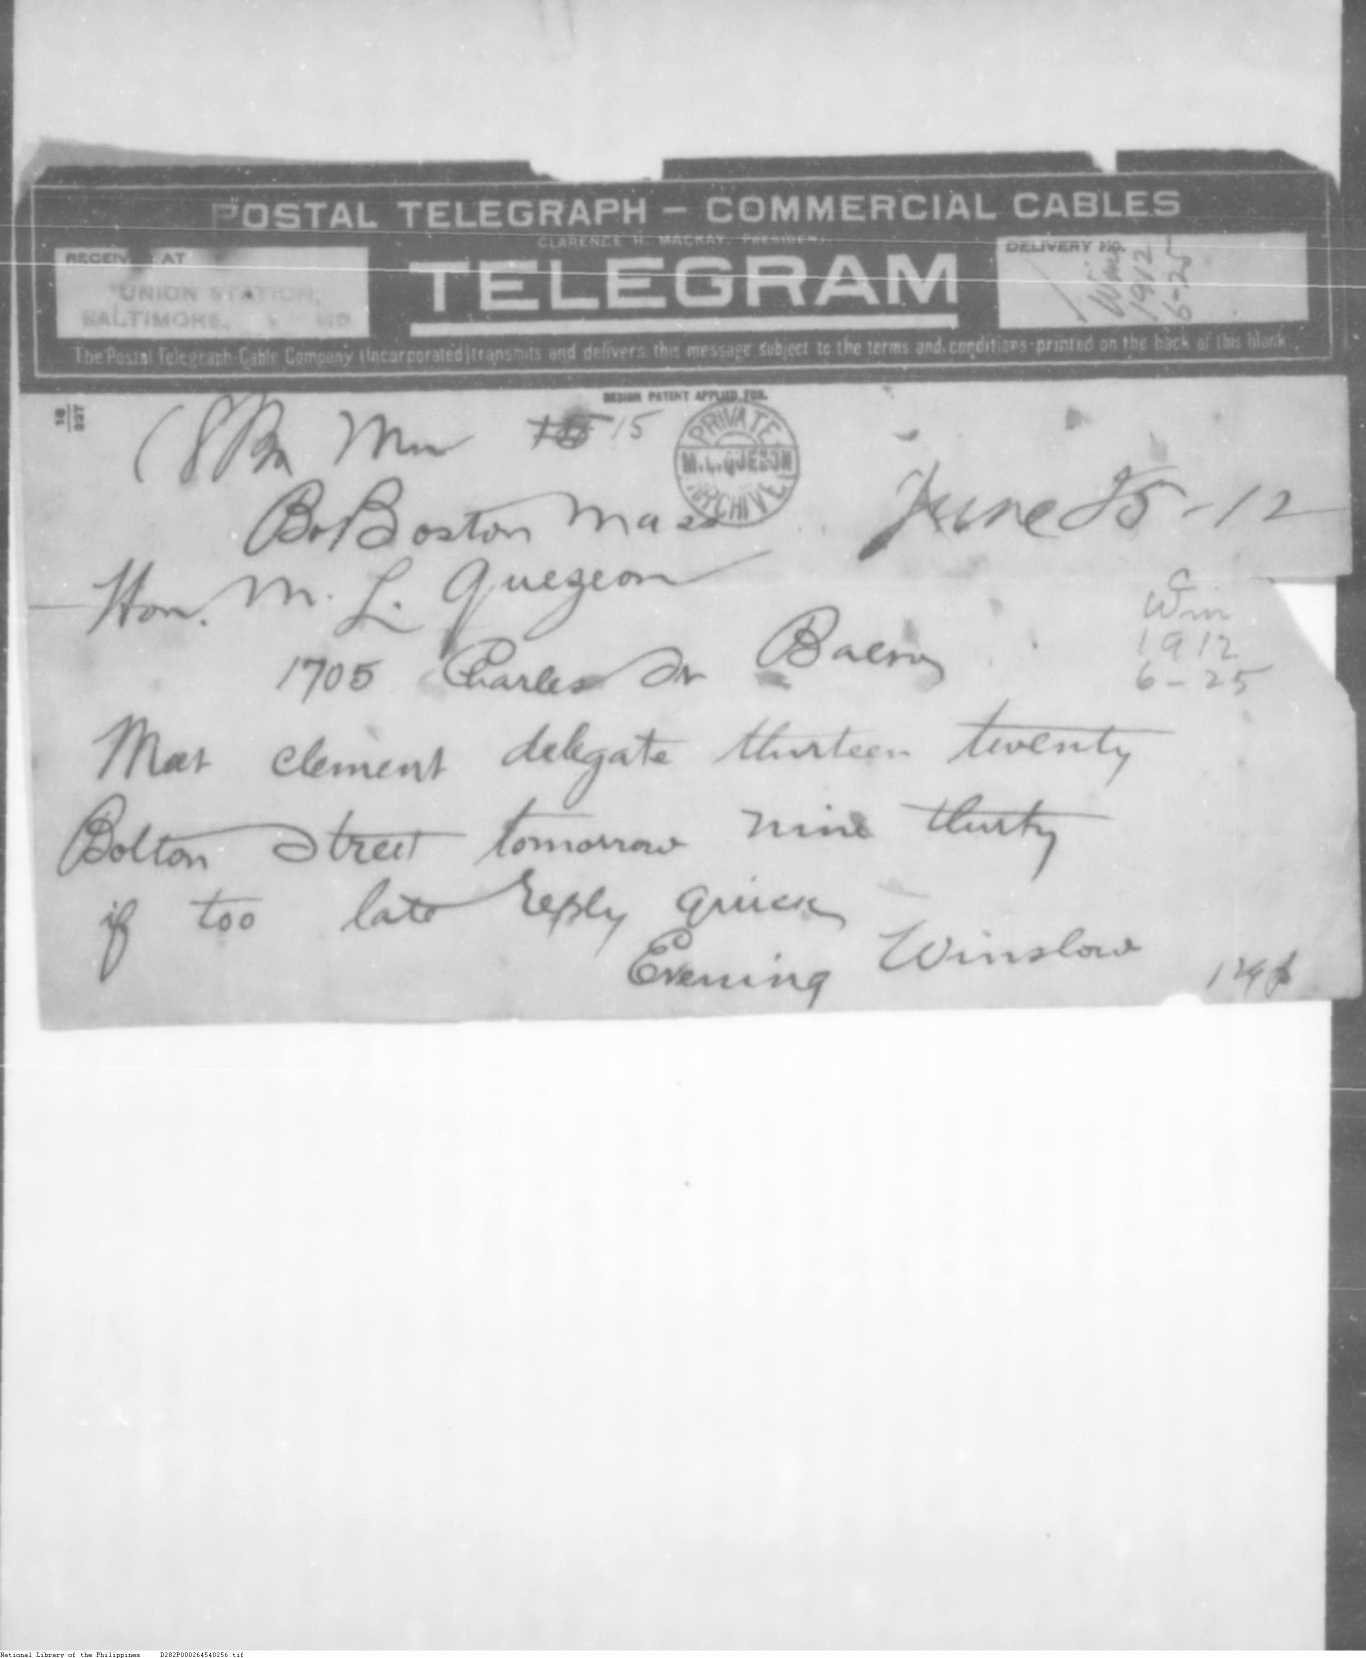 POSTAL TELEGRAPH — COMMERCIAL CABLES
CLARENCE H. MACKAY, PRESIDENT.
RECEIVED AT
UNION STATION,
BALTIMORE, MD
TELEGRAM
DELIVERY No.
Win
1912
6-25
The Postal Telegraph-Cable Company (Incorporated) transmits and delivers this message subject to the terms and conditions printed on the back of this blank.
DESIGN PATENT APPLIED FOR.
15
PRIVATE
M. L. QUEZON
ARCHIVE
Boston Mass June 25-12
Hon. M. L. Quezeon
1705 Charles St
Win
1912
6-25
Meet clement delegate thirteen twenty
Bolton Street tomorrow nine thirty
if too late reply quick
Evening Winslow
National Library of the Philippines D282P000264540256.tif